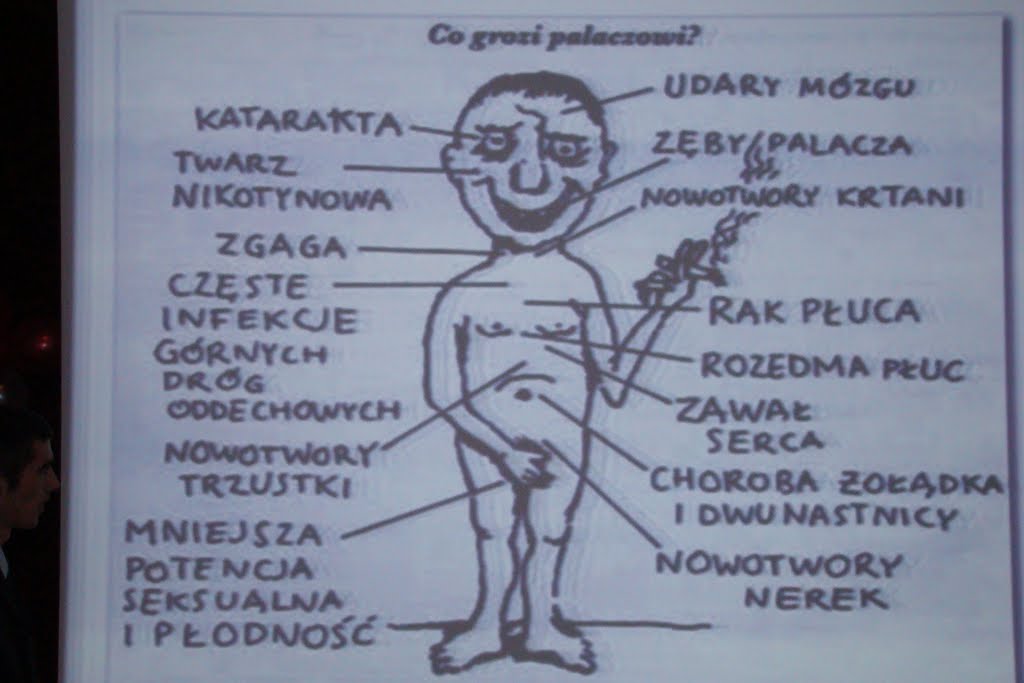 Co grozi palaczowi?
KATARAKTA
TWARZ
NIKOTYNOWA
ZGAGA
CZĘSTE
INFEKCJE
GÓRNYCH
DRÓG
ODDECHOWYCH
NOWOTWORY
TRZUSTKI
MNIEJSZA
POTENCJA
SEKSUALNA
I PŁODNOŚĆ
UDARY MÓZGU
ZĘBY PALACZA
NOWOTWORY KRTANI
RAK PŁUCA
ROZEDMA PŁUC
ZAWAŁ
SERCA
CHOROBA ŻOŁĄDKA
I DWUNASTNICY
NOWOTWORY
NEREK